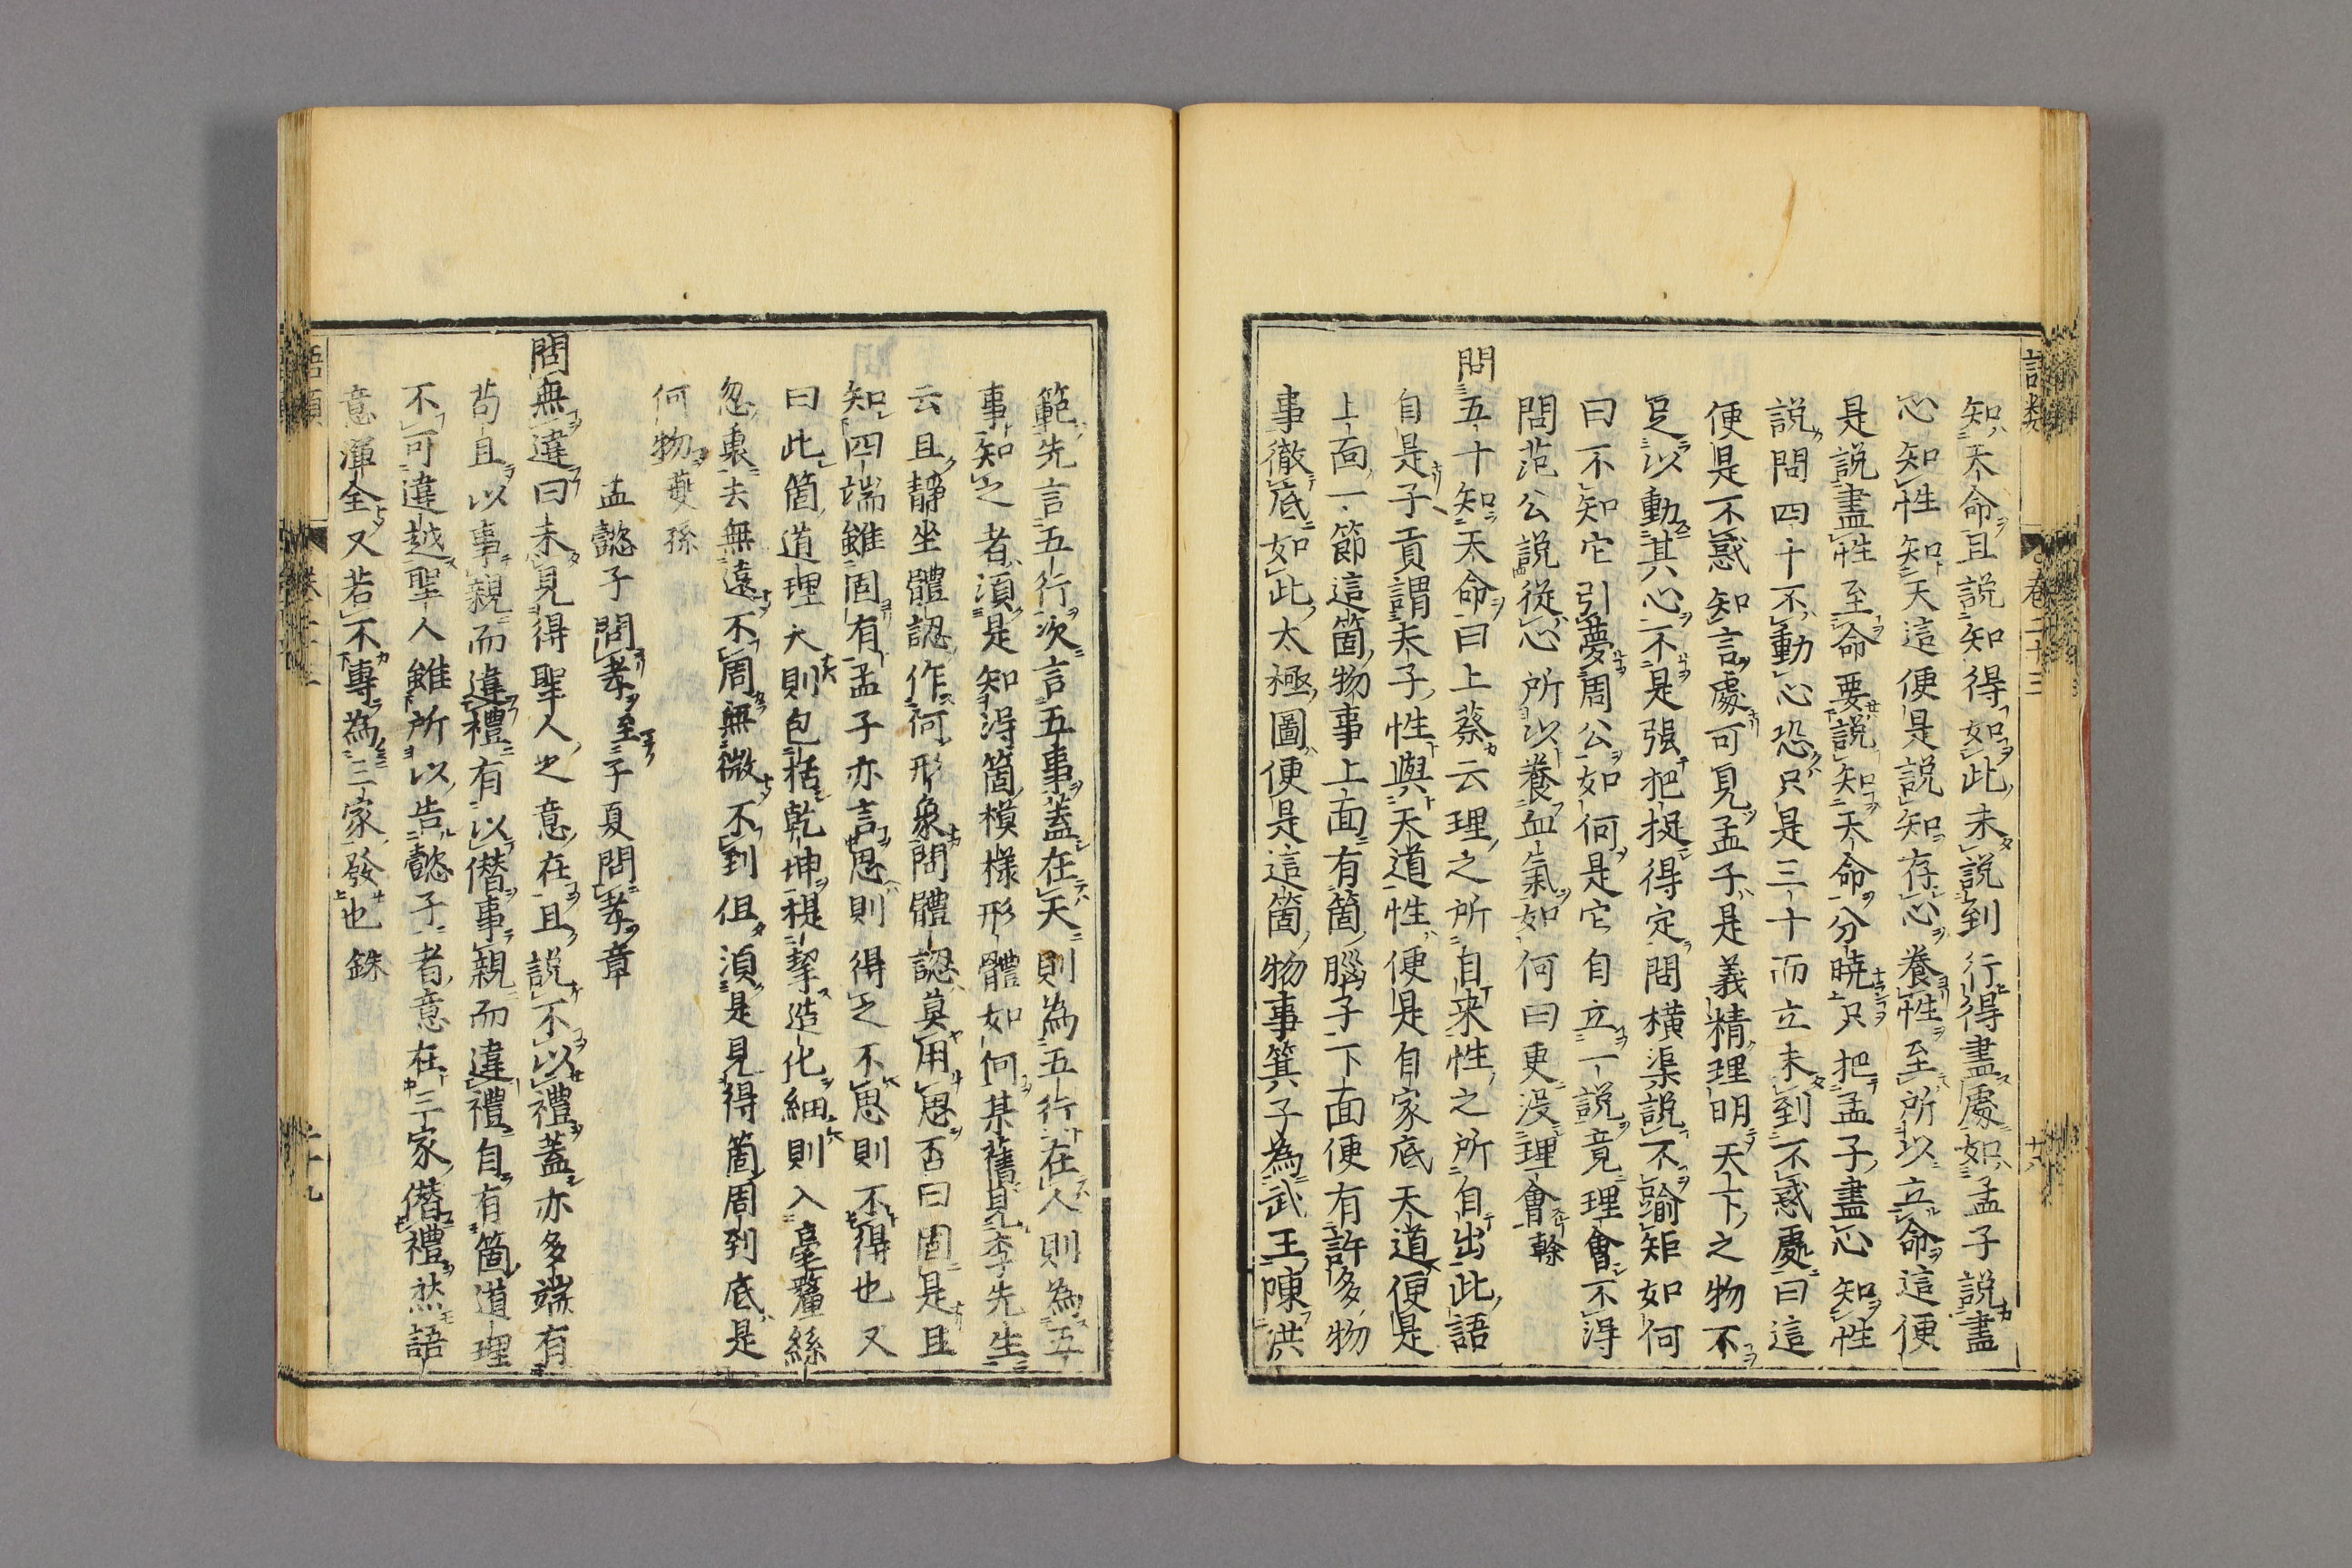 語類
卷二十三
廿八
知天命且説知得如此未説到行得盡處如孟子説盡
心知性知天這便是説知存心養性至所以立命這便
是説盡性至命要説知天命分曉只把孟子盡心知性
説問四十不動心恐只是三十而立未到不惑處曰這
便是不惑知言處可見孟子是義精理明天下之物不
足以動其心不是强把捉得定問橫渠説不踰矩如何
曰不知它引夢周公如何是它自立一説竟理會不得
問范公説從心所以養血氣如何曰更没理會榦
問五十知天命曰上蔡云理之所自来性之所自出此語
自是子貢謂夫子性與天道性便是自家底天道便是
上面一節這箇物事上面有箇腦子下面便有許多物
事徹底如此太極圖便是這箇物事箕子為武王陳洪
範先言五行次言五事蓋在天則為五行在人則為五
事知之者須是知得箇模樣形體如何某舊見李先生
云且靜坐體認作何形象問體認莫用思否曰固是且
知四端雖固有孟子亦言思則得之不思則不得也又
曰此箇道理大則包括乾坤提挈造化細則入毫釐絲
忽裏去無遠不周無微不到但須是見得箇周到底是
何物夔孫
孟懿子問孝至子夏問孝章
問無違曰未見得聖人之意在且説不以禮蓋亦多端有
苟且以事親而違禮有以僭事親而違禮自有箇道理
不可違越聖人雖所以告懿子者意在三家僭禮然語
意渾全又若不專為三家發也銖
語類
二十九